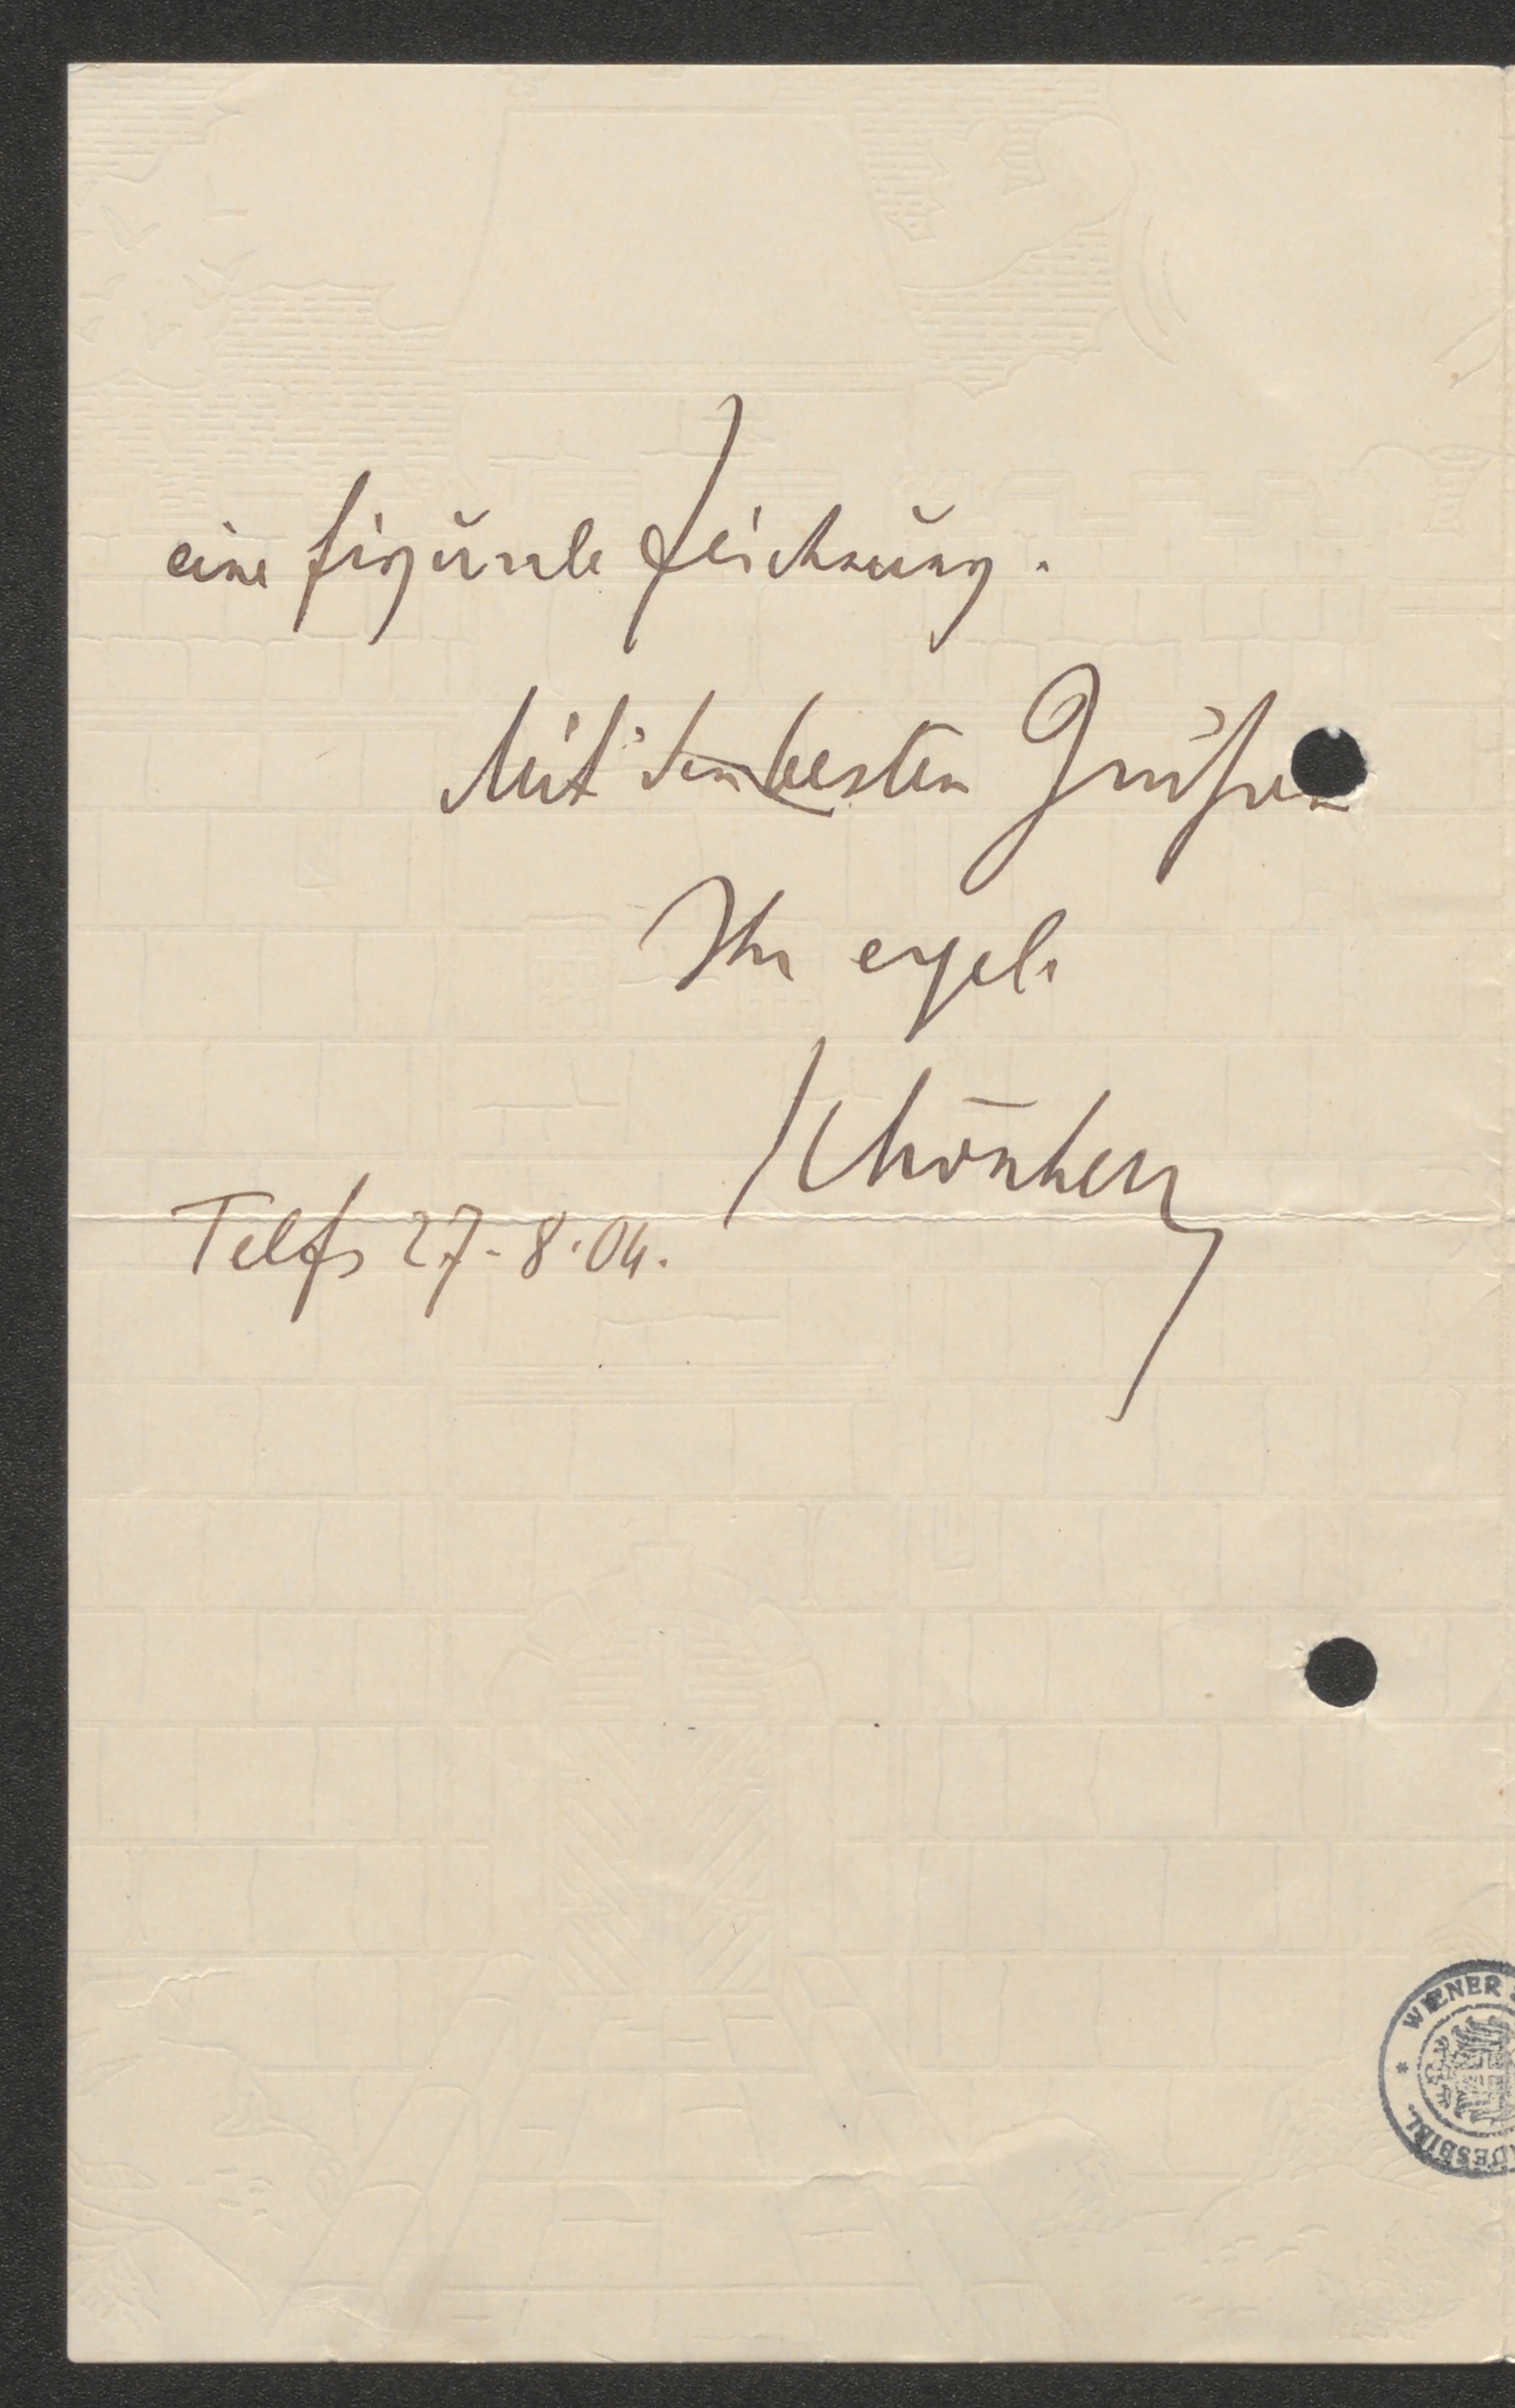 eine figurale Zeichnung.
Mit den besten Grüßen
Ihr ergeb.
Schönherr
Telfs 27.8.04.
WIENER
DESBIBL.